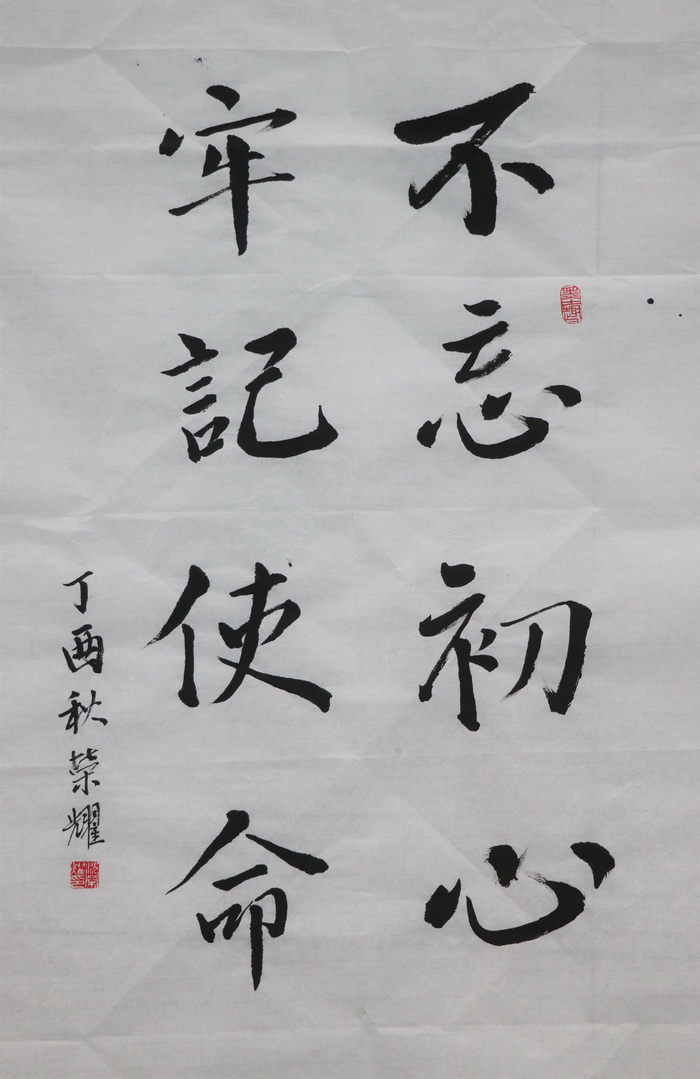 不忘初心
牢記使命
丁酉秋榮耀